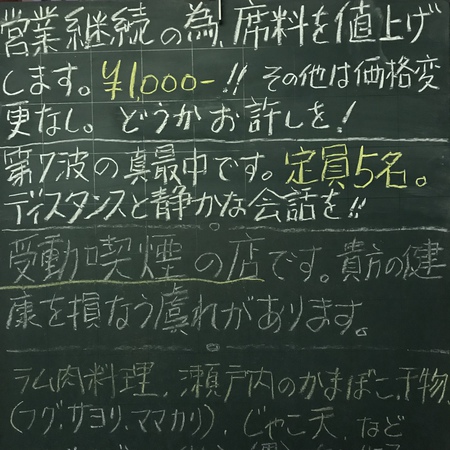 営業継続の為、席料を値上げ
します。¥1,000-!! その他は価格変
更なし。どうかお許しを!
第7波の真最中です。定員5名。
ディスタンスと静かな会話を!!
受動喫煙の店です。貴方の健
康を損なう虞れがあります。
ラム肉料理、瀬戸内のかまぼこ、干物、
(フグ、サヨリ、ママカリ)、じゃこ天、など